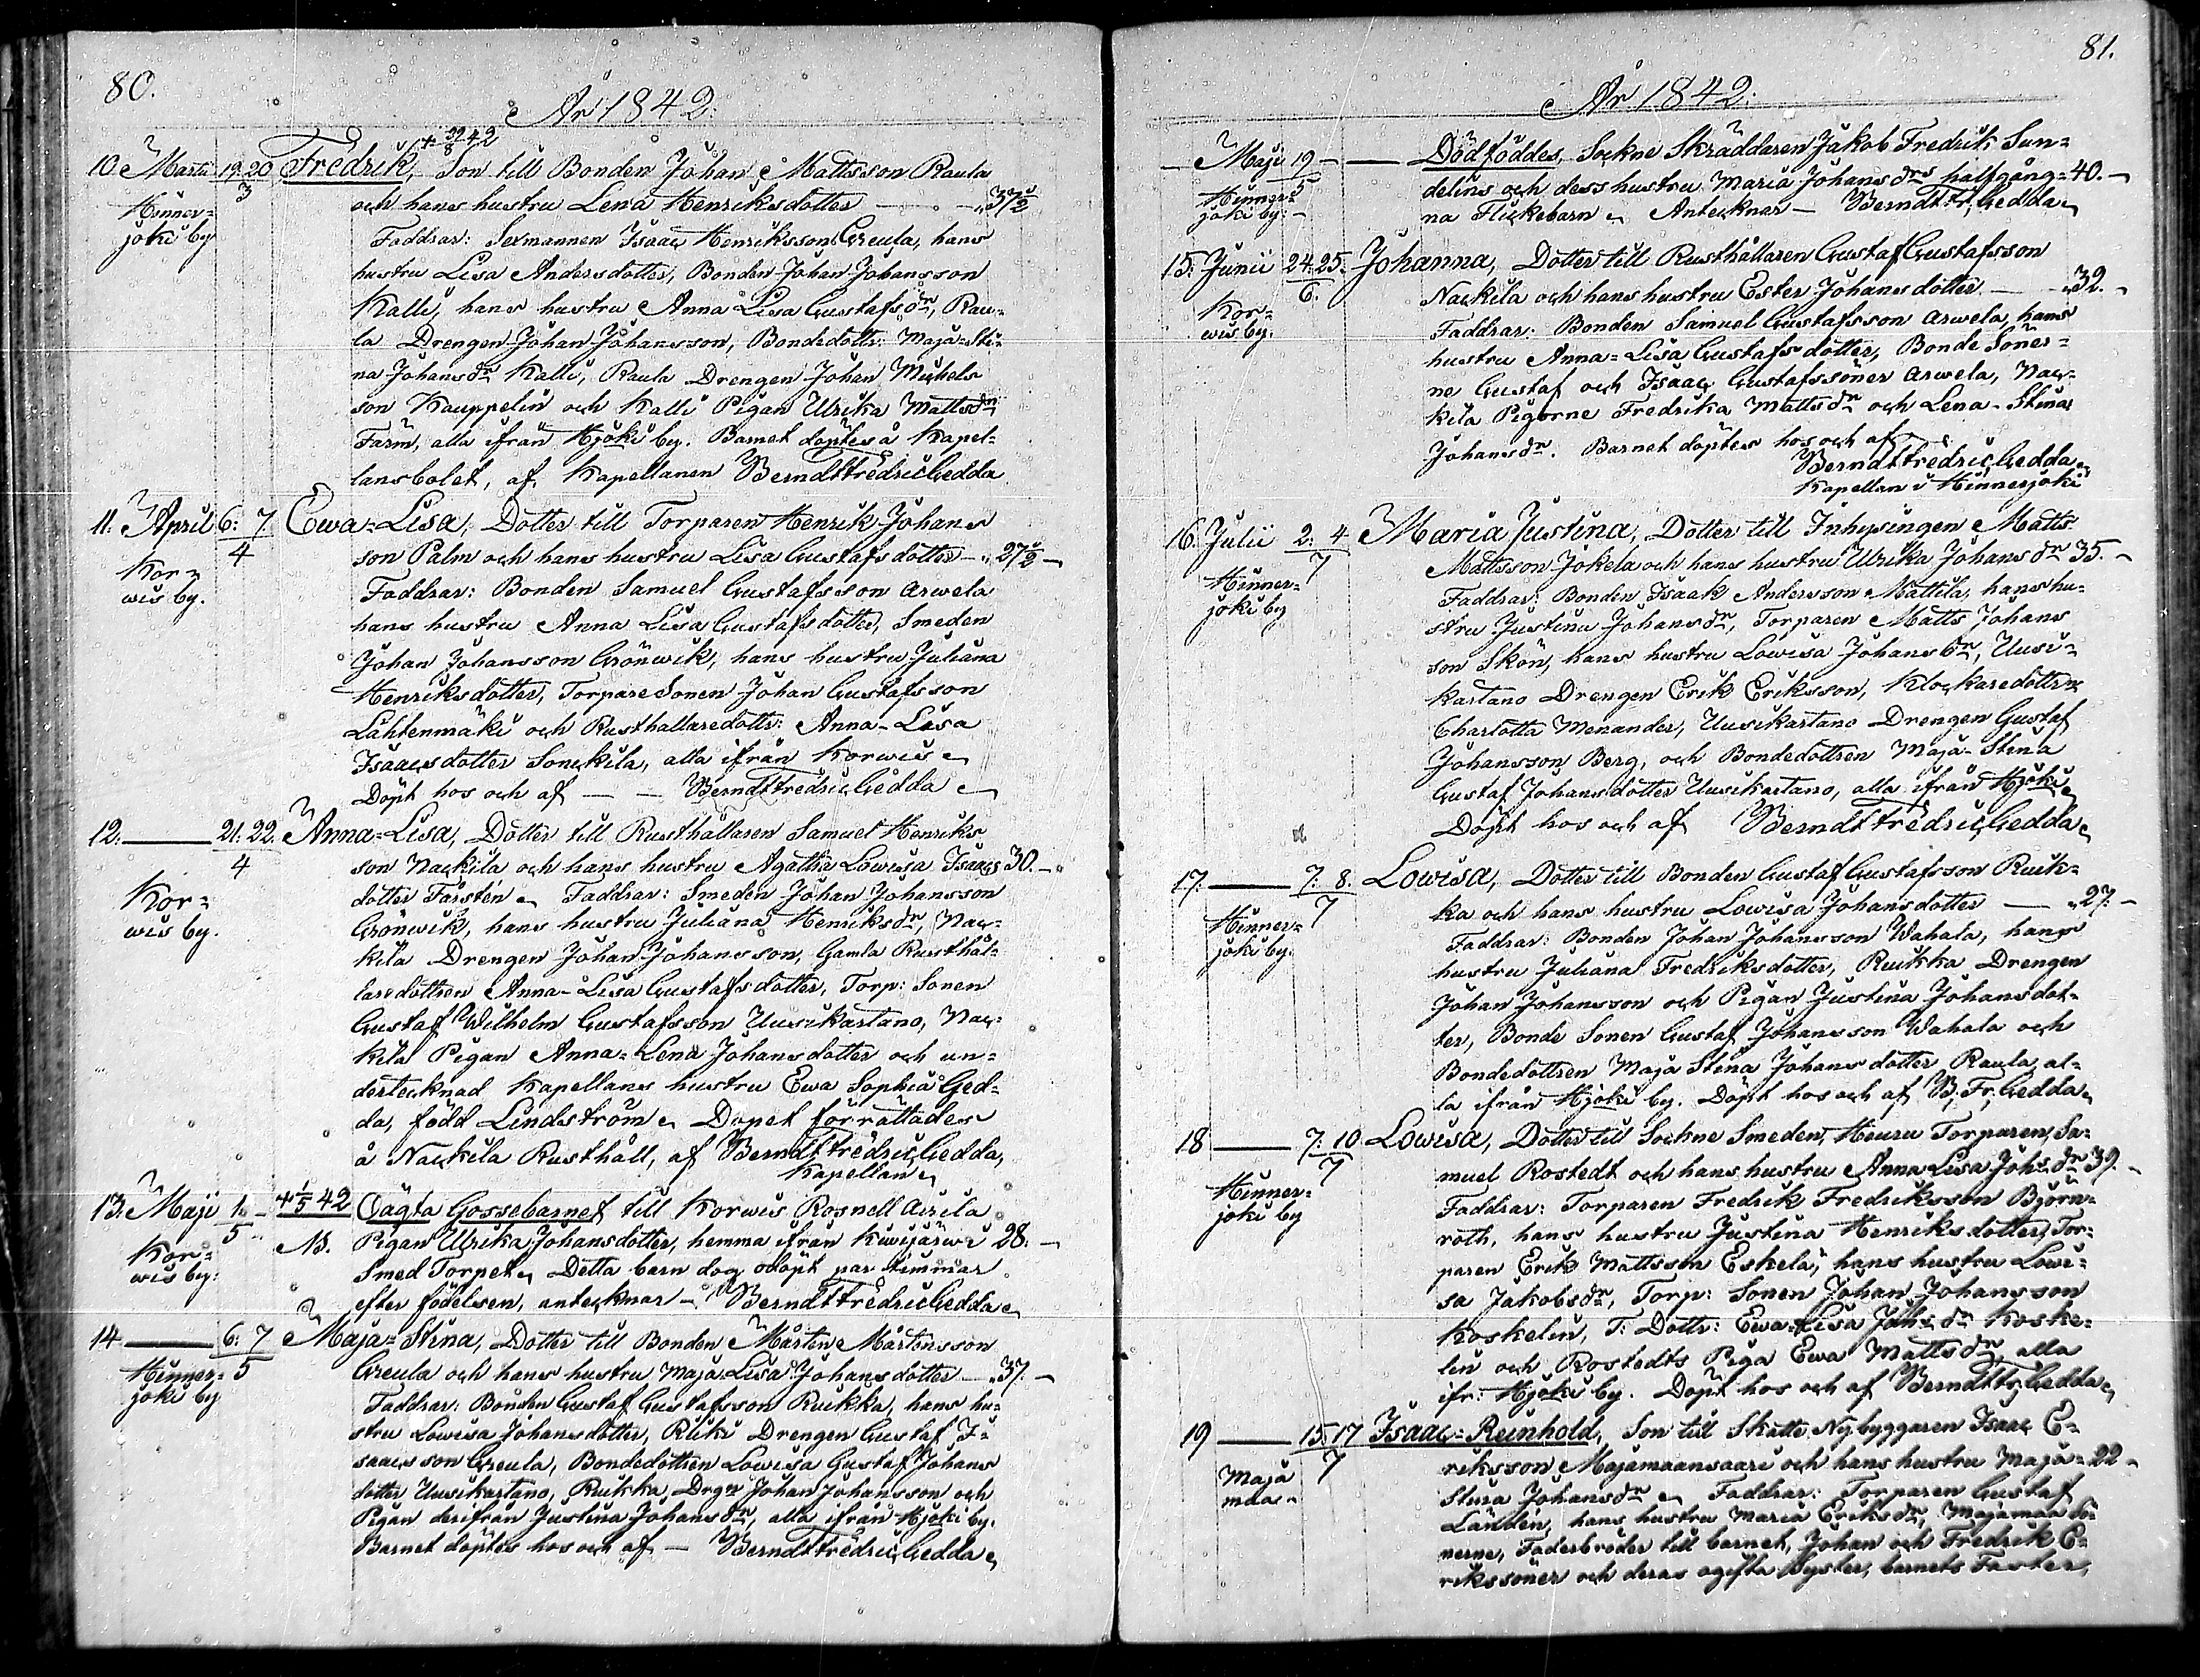 80.
År 1842.
10. Martii 19. 20. Fredrik, Son till Bonden Johan Mattsson Raula
3
Hinner-
joki by
och hans hustru Lena Henriksdotter — 37½
Faddrar: Sexmannen Isaac Henriksson Greula, hans
hustru Lisa Andersdotter, Bonden Johan Johansson
Kalli, hans hustru Anna Lisa Gustafsdr, Rau-
la Drengen Johan Johansson, Bondedottr: Maja-Sti-
na Johansdr Kalli, Raula Drengen Johan Michels
son Kauppelin och Kalli Pigan Ulrika Mattsdr
Farm, alla ifrån Hjoki by. Barnet döptes å Kapel-
lansbolet, af Kapellanen Berndt Fredric Gedda
11. April 6. 7. Ewa-Lisa, Dotter till Torparen Henrik Johans
4
Kor-
wis by.
son Palm och hans hustru Lisa Gustafsdotter — 27½ —
Faddrar: Bonden Samuel Gustafsson Arwela
hans hustru Anna Lisa Gustafsdotter, Smeden
Johan Johansson Grönwik, hans hustru Juliana
Henriksdotter, Torpare Sonen Johan Gustafsson
Lähtenmäki och Rusthållaredottr: Anna-Lisa
Isaacsdotter Sonckila, alla ifrån Korwis
Döpt hos och af — — Berndt Fredric Gedda
12. — 21. 22. Anna-Lisa, Dotter till Rusthållaren Samuel Henriks
4
Kor-
wis by.
son Nackila och hans hustru Agatha Lowisa Isaacs 30. —
dotter Forstén Faddrar: Smeden Johan Johansson
Grönwik, hans hustru Juliana Henriksdr, Nac-
kila Drengen Johan Johansson, Gamla Rusthål-
laredottren Anna-Lisa Gustafsdotter, Torp: Sonen
Gustaf Wilhelm Gustafsson Uusikartano, Nac-
kila Pigan Anna-Lena Johansdotter och un-
dertecknad Kapellans hustru Ewa Sophia Ged-
da, född Lindström. Dopet förrättades
å Nackila Rusthåll, af Berndt Fredric Gedda,
Kapellan
13. Maji 1. — 1/5 42 Oägta Gossebarnet till Korwis Rosnell Airila
5
Kor-
wis by:
NB. Pigan Ulrika Johansdotter, hemma ifrån Kiwijärwi 28. —
Smed Torpet. Detta barn dog odöpt par timmar
efter födelsen, antecknar — Berndt Fredric Gedda
14 — 6. 7 Maja-Stina, Dotter till Bonden Mårten Mårtensson
5
Hinner-
joki by
Greula och hans hustru Maja Lisa Johansdotter — 37. —
Faddrar: Bonden Gustaf Gustafsson Ruikka, hans hu-
stru Lowisa Johansdotter, Rliki Drengen Gustaf I-
saacsson Greula, Bondedottren Lowisa Gustaf Johans
dotter Uusikartano, Ruikka Drgn Johan Johansson och
Pigan derifrån Justina Johansdr, alla ifrån Hjoki by.
Barnet döptes hos och af — Berndt Fredric Gedda
81.
År 1842.
— Maji 19 — — Dödföddes, Sockne Skräddaren Jakob Fredrik Sun-
5
Hinner-
joki by. —
delins och dess hustru Maria Johansdrs halfgång- 40. —
na Flickebarn. Antecknar — Berndt Fr. Gedda
15. Junii 24. 25. Johanna, Dotter till Rusthållaren Gustaf Gustafsson
6.
Kor-
wis by.
Nackila och hans hustru Ester Johansdotter — 32. —
Faddrar: Bonden Samuel Gustafsson Arwela, hans
hustru Anna-Lisa Gustafsdotter, Bonde Söner-
ne Gustaf och Isaac Gustafssöner Arwela, Nac-
kila Pigorne Fredrika Mattsdr och Lena-Stina
Johansdr. Barnet döptes hos och af
Berndt Fredric Gedda
Kapellan i Hinnerjoki
16. Julii 2. 4 Maria Justina, Dotter till Inhysingen Matts
7
Hinner-
joki by
Mattsson Jokela och hans hustru Ulrika Johansdr 35. —
Faddrar: Bonden Isaak Andersson Mattila, hans hu-
stru Justina Johansdr, Torparen Matts Johans
son Skön, hans hustru Lowisa Johansdr, Uusi-
kartano Drengen Erik Eriksson, Klockaredottrn
Charlotta Menander, Uusikartano Drengen Gustaf
Johansson Berg, och Bondedottren Maja-Stina
Gustaf Johansdotter Uusikartano, alla ifrån Hjoki
Döpt hos och af Berndt Fredric Gedda
17. — 7. 8. Lowisa, Dotter till Bonden Gustaf Gustafsson Ruik-
7
Hinner-
joki by.
ka och hans hustru Lowisa Johansdotter — 27. —
Faddrar: Bonden Johan Johansson Wahala, hans
hustru Juliana Fredriksdotter, Ruikka Drengen
Johan Johansson och Pigan Justina Johansdot-
ter, Bonde Sonen Gustaf Johansson Wahala och
Bondedottren Maja Stina Johansdotter Raula, al-
la ifrån Hjoki by. Döpt hos och af B. Fr. Gedda
18 — 7. 10 Lowisa, Dotter till Sockne Smeden, Heuru Torparen, Sa-
7
Hinner-
joki by
muel Rostedt och hans hustru Anna Lisa Johs.dr 39. —
Faddrar: Torparen Fredrik Fredriksson Björn-
roth, hans hustru Justina Henriksdotter, Tor-
paren Erik Mattsson Eskela, hans hustru Lowi-
sa Jakobsdr, Torp: Sonen Johan Johansson
Koskelin, T: Dottr: Ewa-Lisa Johs.dr Koske-
lin och Rostedts Piga Ewa Mattsdr, alla
ifr: Hjoki by. Döpt hos och af Berndt Fr Gedda
19 — 15. 17 Isaac-Reinhold, Son till Skatte Nybyggaren Isaac E-
7
Maja
maa
riksson Majamaansaari och hans hustru Maja- 22 —
Stina Johansdr. Faddrar: Torparen Gustaf
Landén, hans hustru Maria Eriksdr, Majamaa Sö-
nerne, Faderbröder till barnet, Johan och Fredrik E-
rikssöner och deras ogifta Syster, barnets Faster,